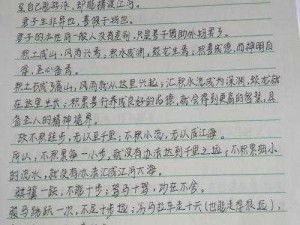 是自己能游水，却能横渡江河。
君子生非异也，善假于物也。
君子的本性同一般人没有差别，只是善于借助外物罢了。
积土成山，风雨兴焉，积水成渊，蛟龙生焉；积善成德，而神明自
得，圣心备焉。
积土成了高山，风雨就从这里兴起；汇积水流成为深渊，蛟龙就
在这里生长；积累善行养成良好的品德，就会得到更高的智慧，具
备圣人的精神境界。
故不积跬步，无以至千里；不积小流，无以成江海。
所以，不积累每一小步，就没有办法达到千里之远；不积累细小
的流水，就没有办法汇成江河大海。
骐骥一跃，不能十步；驽马十驾，功在不舍。
骏马跳跃一次，不足十步远；驽马拉车走十天（也能走得很远），